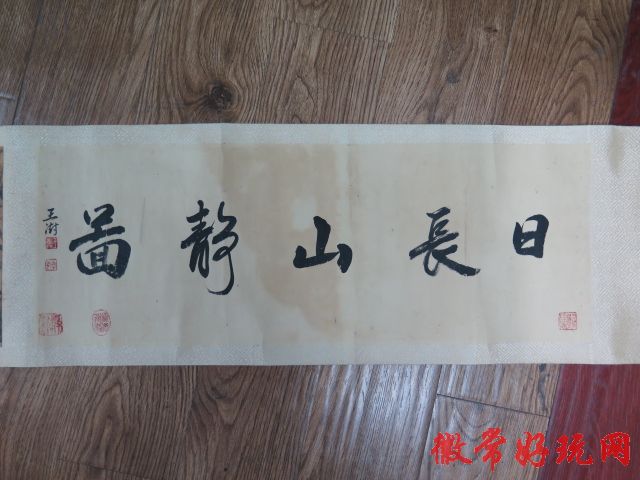 日長山靜啚
王澍
徽常好玩网